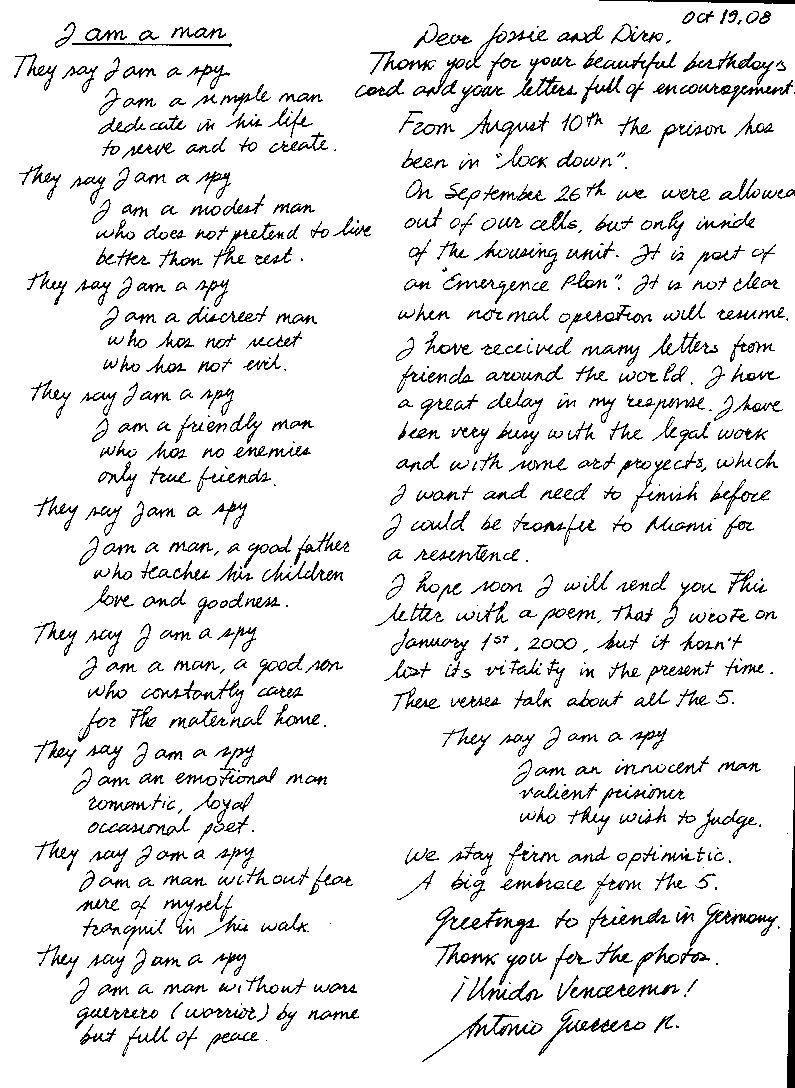 I am a man
They say I am a spy
I am a simple man
dedicate in his life
to serve and to create.
They say I am a spy
I am a modest man
who does not pretend to live
better than the rest.
They say I am a spy
I am a discreet man
who has not secret
who has not evil.
They say I am a spy
I am a friendly man
who has no enemies
only true friends.
They say I am a spy
I am a man, a good father
who teaches his children
love and goodness.
They say I am a spy
I am a man, a good son
who constantly cares
for the maternal home.
They say I am a spy
I am an emotional man
romantic, loyal
occasional poet.
They say I am a spy
I am a man without fear
nere of myself
tranquil in his walk
They say I am a spy
I am a man without wars
guerrero (worrior) by name
but full of peace.
Oct 19, 08
Dear Jossie and Dirk,
Thank you for your beautiful birthday's
card and your letters full of encouragement.
From August 10th the prison has
been in "lock down".
On September 26th we were allowed
out of our cells, but only inside
of the housing unit. It is part of
an "Emergence Plan". It is not clear
when normal operation will resume.
I have received many letters from
friends around the world. I have
a great delay in my response. I have
been very busy with the legal work
and with some art proyects, which
I want and need to finish before
I could be transfer to Miami for
a resentence.
I hope soon I will send you this
letter with a poem, that I wrote on
January 1st, 2000, but it hasn't
lost its vitality in the present time.
These verses talk about all the 5.
They say I am a spy
I am an innocent man
valient prisioner
who they wish to judge.
We stay firm and optimistic.
A big embrace from the 5.
Greetings to friends in Germany.
Thank you for the photos.
¡Unidos Venceremos!
Antonio Guerrero R.